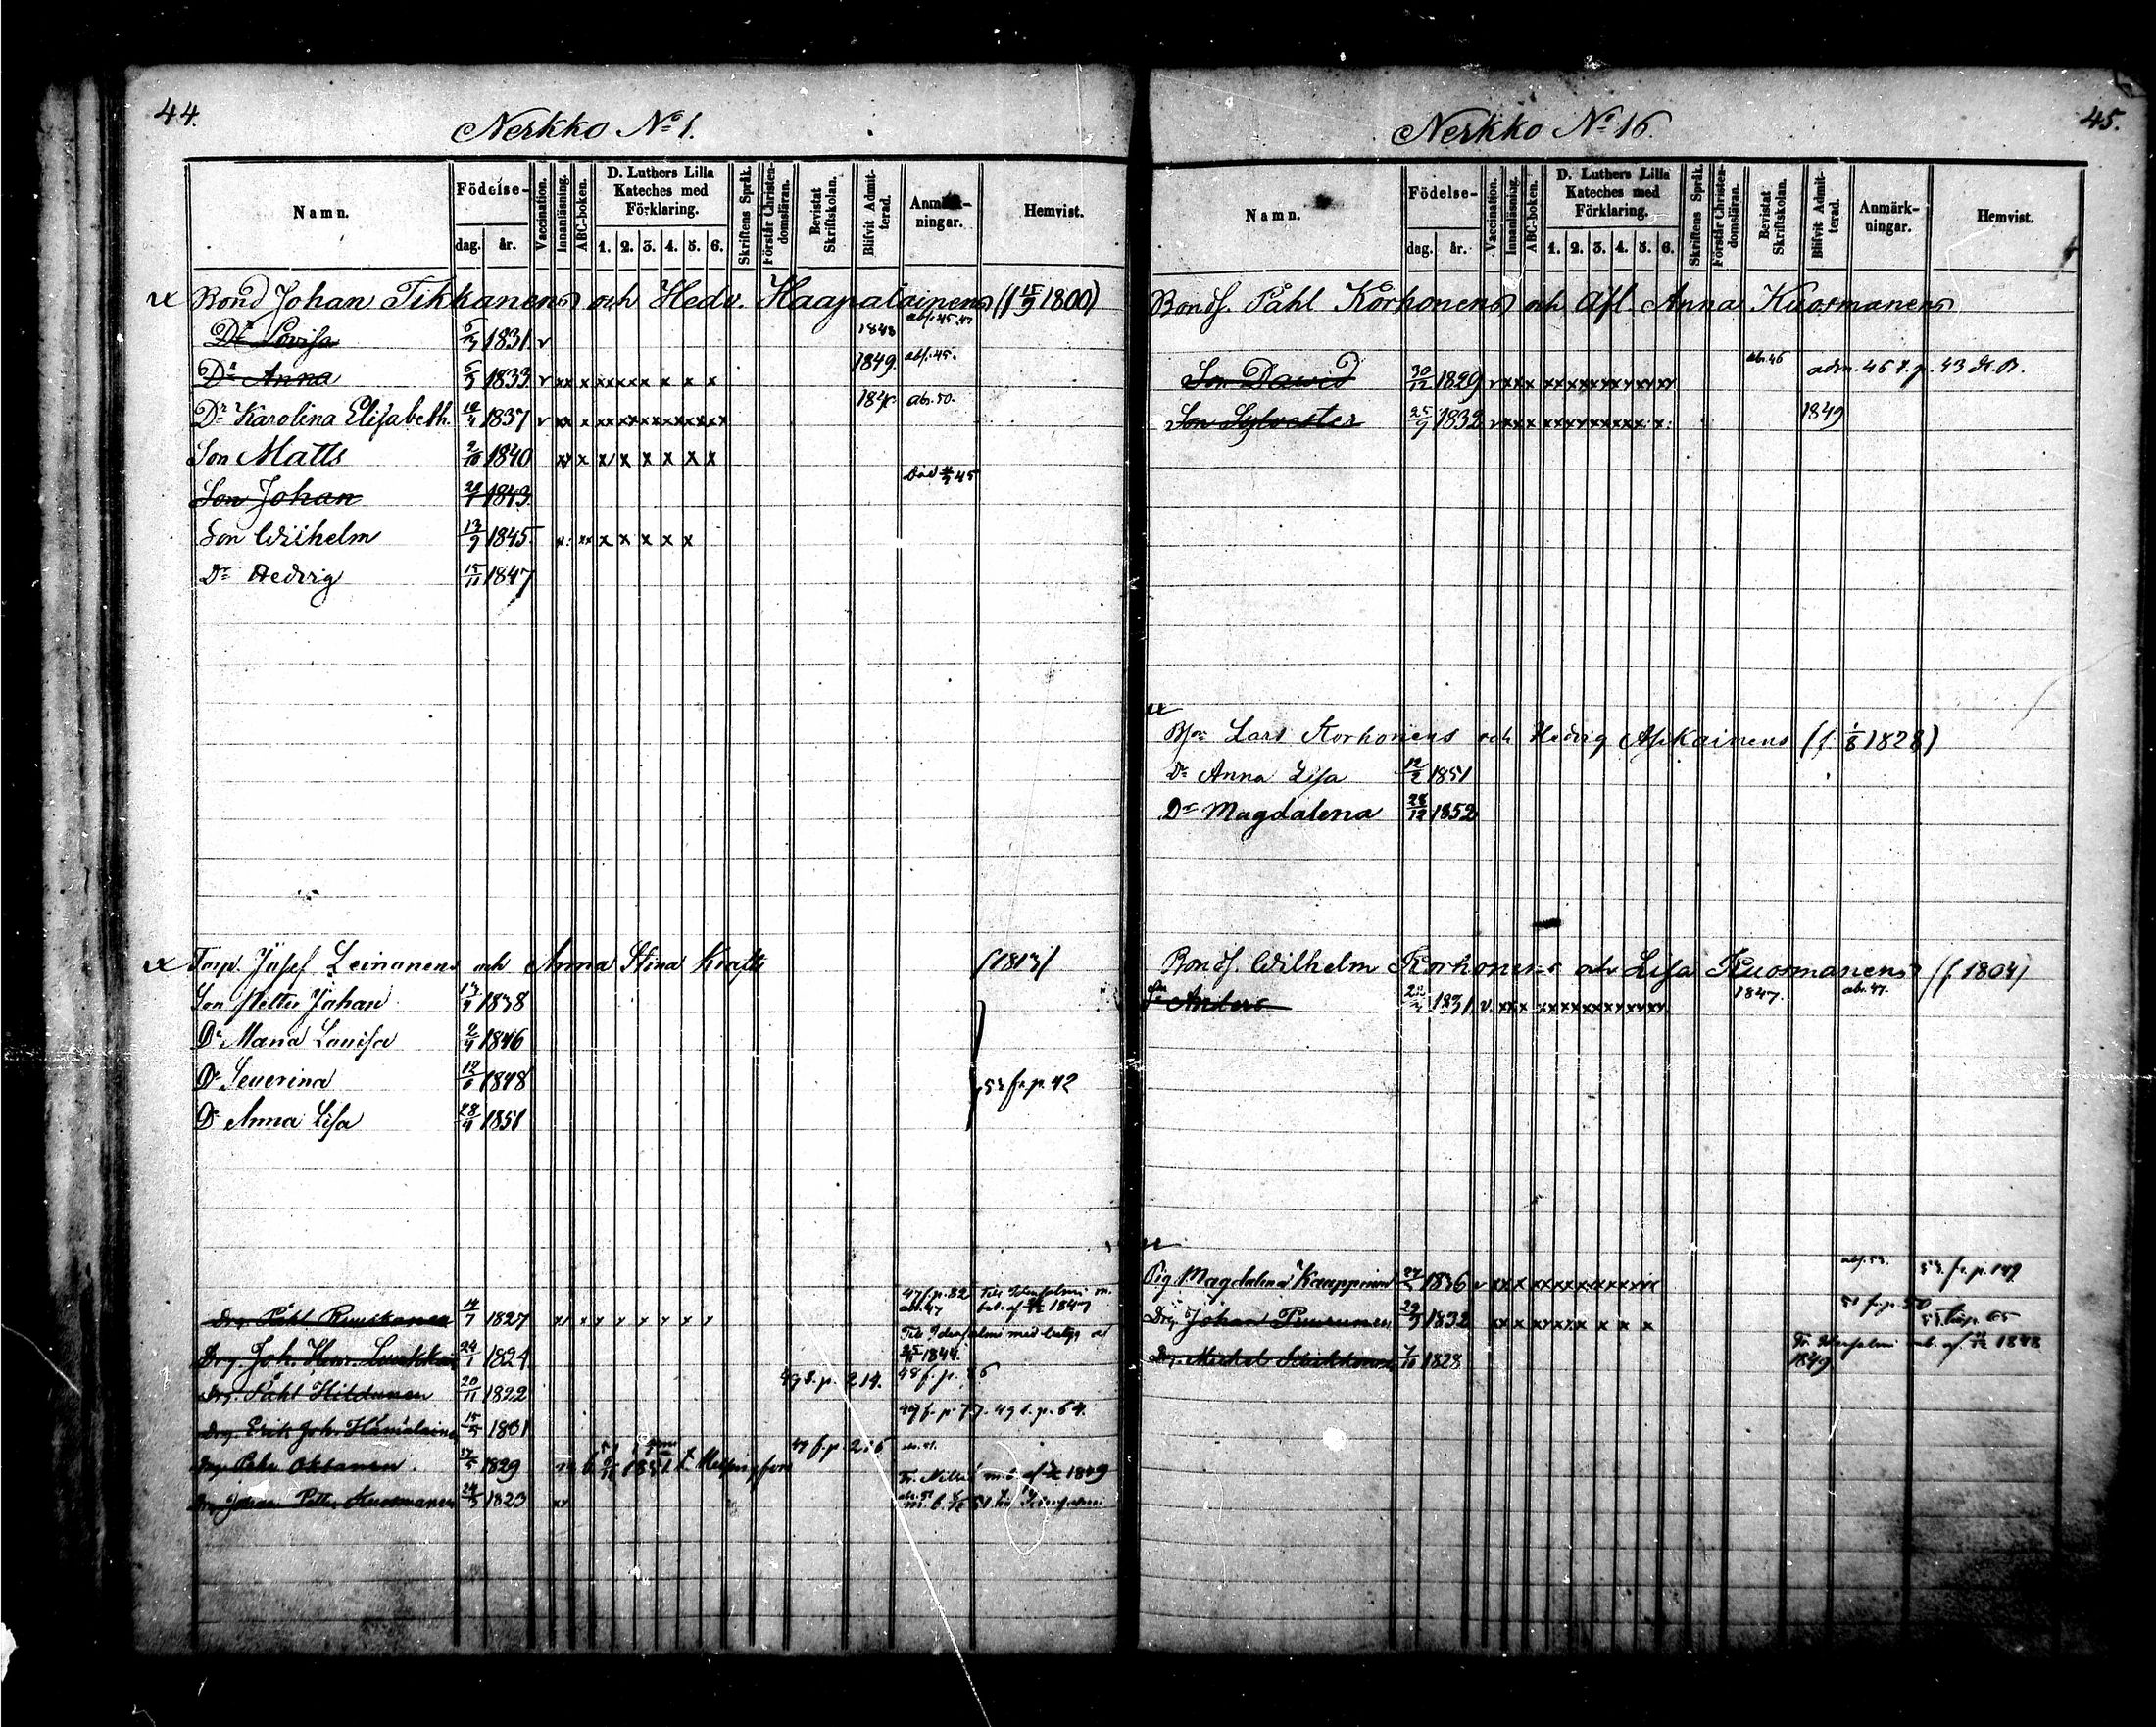 44.
Nerkko No 1.
Namn.
Födelse-
dag. år.
Vaccination.
Innanläsning.
ABC-boken.
D. Luthers Lilla
Kateches med
Förklaring.
1. 2. 3. 4. 5. 6.
Skriftens Språk.
Förstår Christen-
domsläran.
Bevistat
Skriftskolan.
Blifvit Admit-
terad.
Anmärk-
ningar.
Hemvist.
Bond Johan Tikkanens och Hedv. Haapalainens (f 15/9 1800)
Dr Lovisa 1831 v 1848
Dr Anna 1833 v xx x xxxxx x x x x 1849. abs. 45.
Dr Karolina Elisabeth. 1837 v xx x abs. 50.
Son Matts 2/10 1840 x x x x x x
Son Johan 1843 Död 45
Son Wilhelm 13/9 1845 x xx x x x x x
Dr Hedvig 15/11 1847
Torp. Josef Leinonens och Anna Stina Krafts (1813)
Son Petter Johan 1838
Dr Maria Lovisa 1846
Dr Severina 1848
Dr Anna Lisa 1851
53 fr. p. 42
Drg. Påhl Ruuskanen 14/7 1827 x x x x x x x 47 f. p. 82 Till Idensalmi m. bet. af 1847
Drg. Joh. Henr. 24/1 1824 Till Idensalmi med betyg af 1844.
Drg. Påhl Hildunen 20/11 1822 p. 214. 48 f. p. 86
Drg. Erik Joh. Hämäläinen 1801 49 t. p. 64.
Drg. Pehr Oksanen. 17/5 1829 1851 t. Helsingfors
Drg. Johan Petter Kuosmanen 1823 m. b. 51 Idensalmi
45.
Nerkko No 16.
Namn.
Födelse-
dag. år.
Vaccination.
Innanläsning.
ABC-boken.
D. Luthers Lilla
Kateches med
Förklaring.
1. 2. 3. 4. 5. 6.
Skriftens Språk.
Förstår Christen-
domsläran.
Bevistat
Skriftskolan.
Blifvit Admit-
terad.
Anmärk-
ningar.
Hemvist.
Bonds. Påhl Korhonens och Afl. Anna Kuosmanens
Son David 30/12 1829 abs. 46 adm. 46 t. p. 43
Son Sylvester 25/9 1832 1849
Lars Korhonens och Hedvig Asikainens (f. 1/8 1828)
Dr Anna Lisa 12/2 1851
Dr Magdalena 28/12 1852
Bonds. Wilhelm Korhonens och Lisa Kuosmanens (f 1804)
Son Anders 1831 v. 1847. abs. 47.
Pig. Magdalena Kauppinen 1836 v abs. 53. 53. fr. p. 149
Drg. Johan Puurunen 29/3 1832 51 f. p. 50
Drg. Michel 1828 Fr. Idensalmi 1849 m. b. af 1848